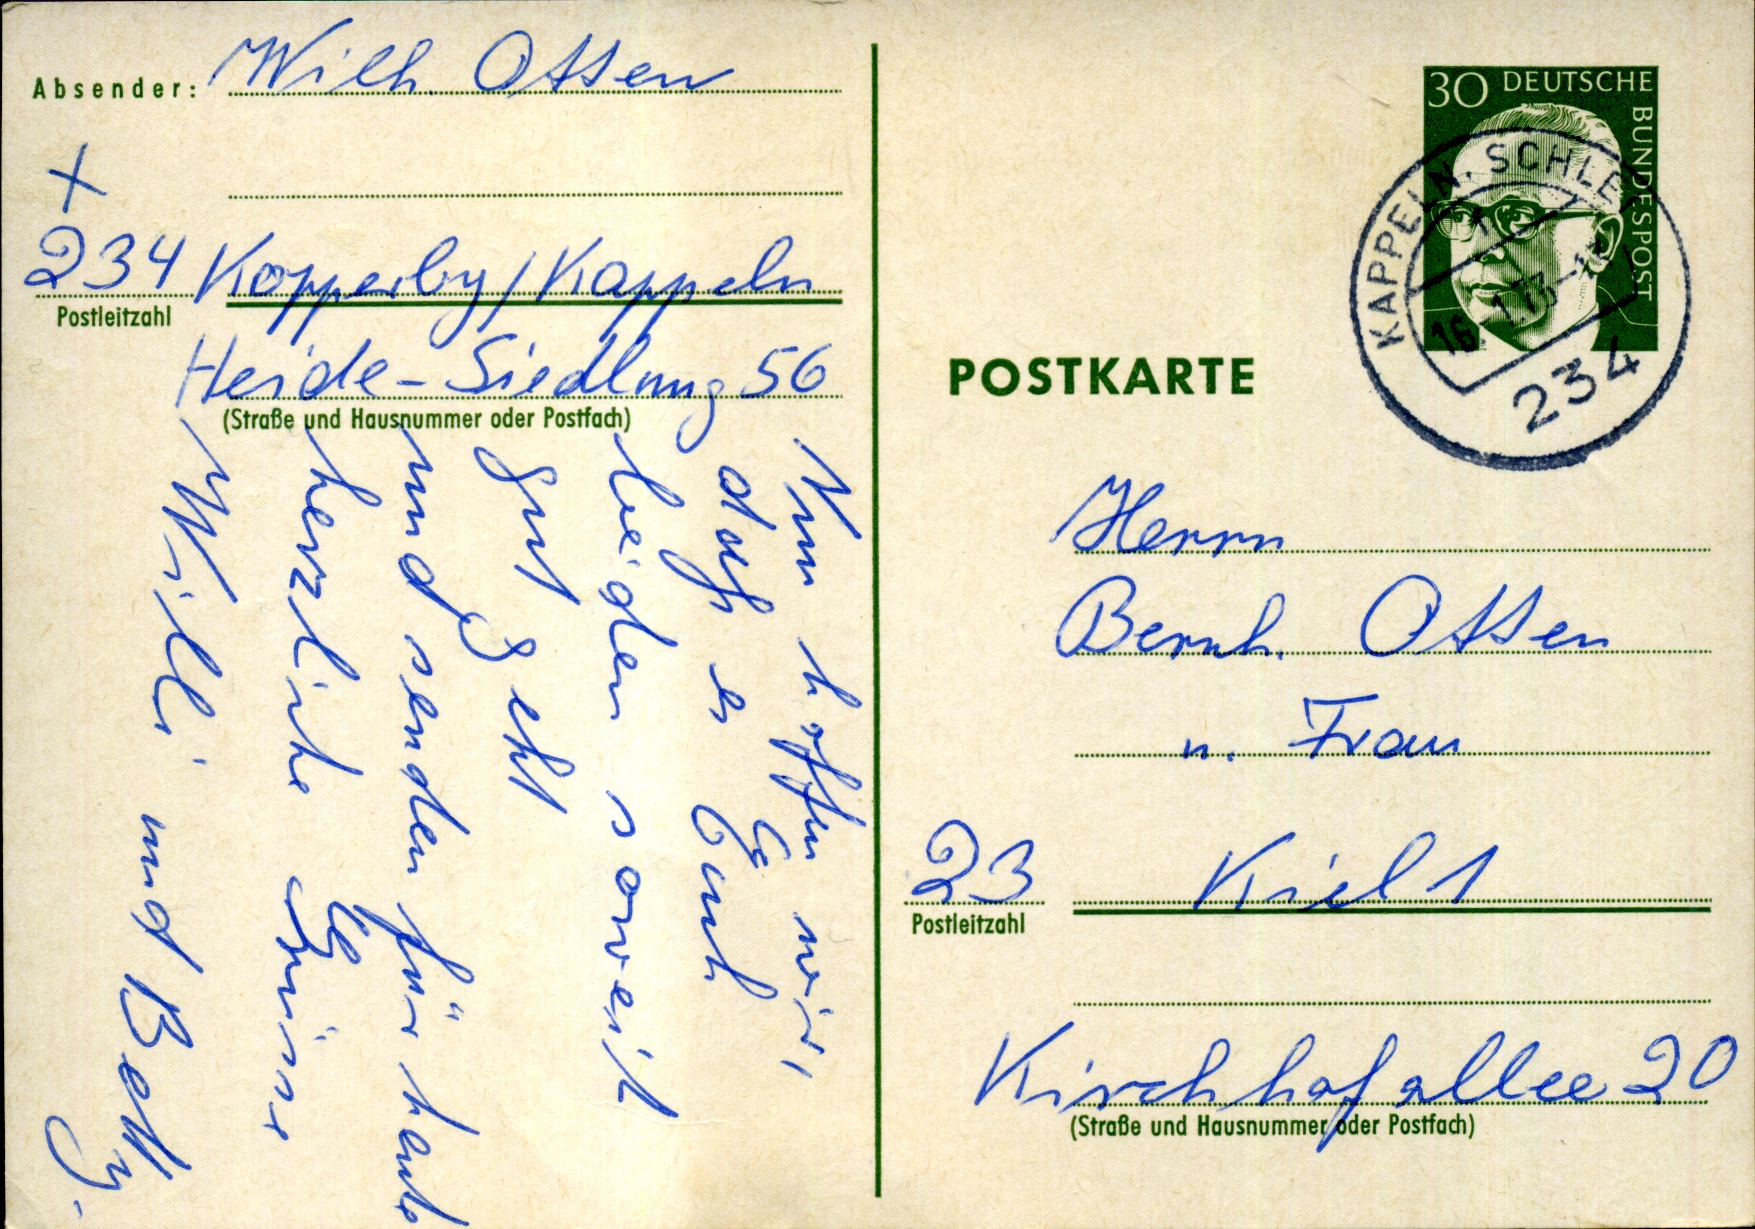 Absender: Wilh. Otten
+
234 Kopperby/Kappeln
Postleitzahl
Heide-Siedlung 56
(Straße und Hausnummer oder Postfach)
Nun hoffen wir,
daß es Euch
beiden soweit
gut geht
und senden für heute
herzliche Grüsse
Willi und Betty.
30 DEUTSCHE
BUNDESPOST
KAPPELN, SCHLEI
16.-1.73
234
POSTKARTE
Herrn
Bernh. Otten
u. Frau
23 Kiel 1
Postleitzahl
Kirchhofallee 20
(Straße und Hausnummer oder Postfach)